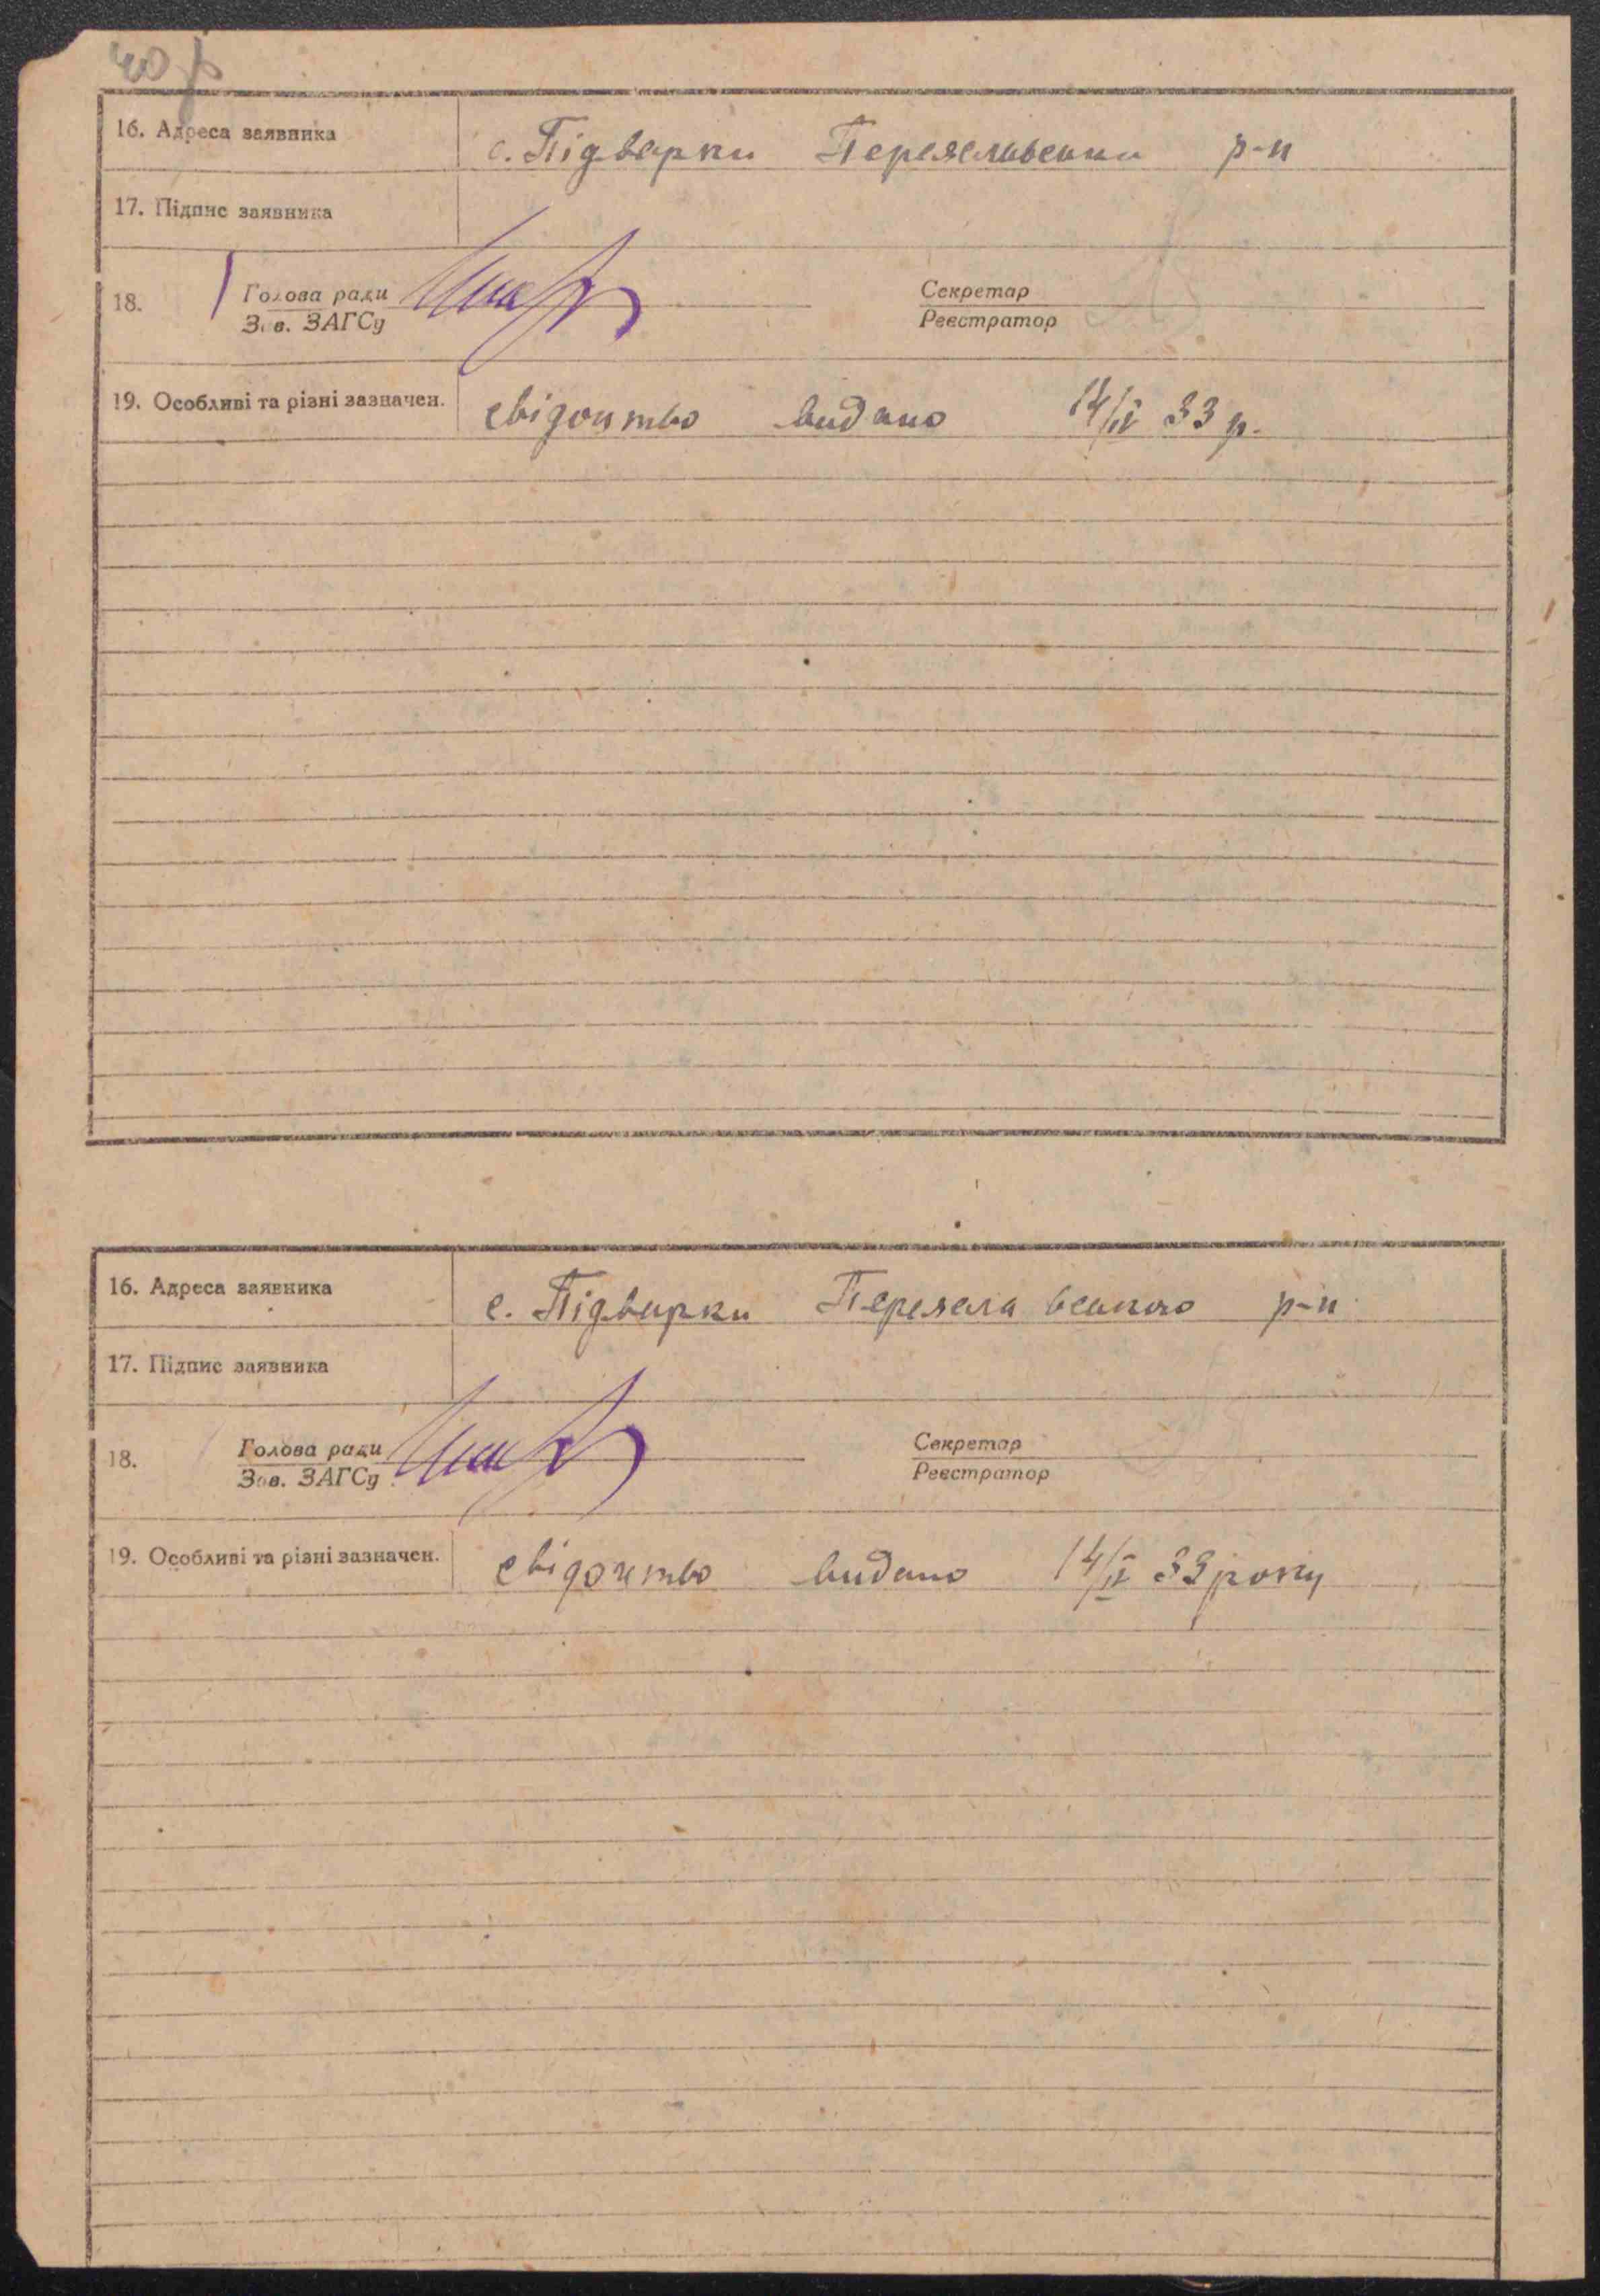 16. Адреса заявника с. Підварки Переяславський р-н
17. Підпис заявника
18. Голова ради Секретар
Зав. ЗАГСу Реєстратор
19. Особливі та різні зазначен. свідоцтво видано 14/IV 33 р.
16. Адреса заявника с. Підварки Переяславського р-н
17. Підпис заявника
18. Голова ради Секретар
Зав. ЗАГСу Реєстратор
19. Особливі та різні зазначен. свідоцтво видано 14/IV 33 року